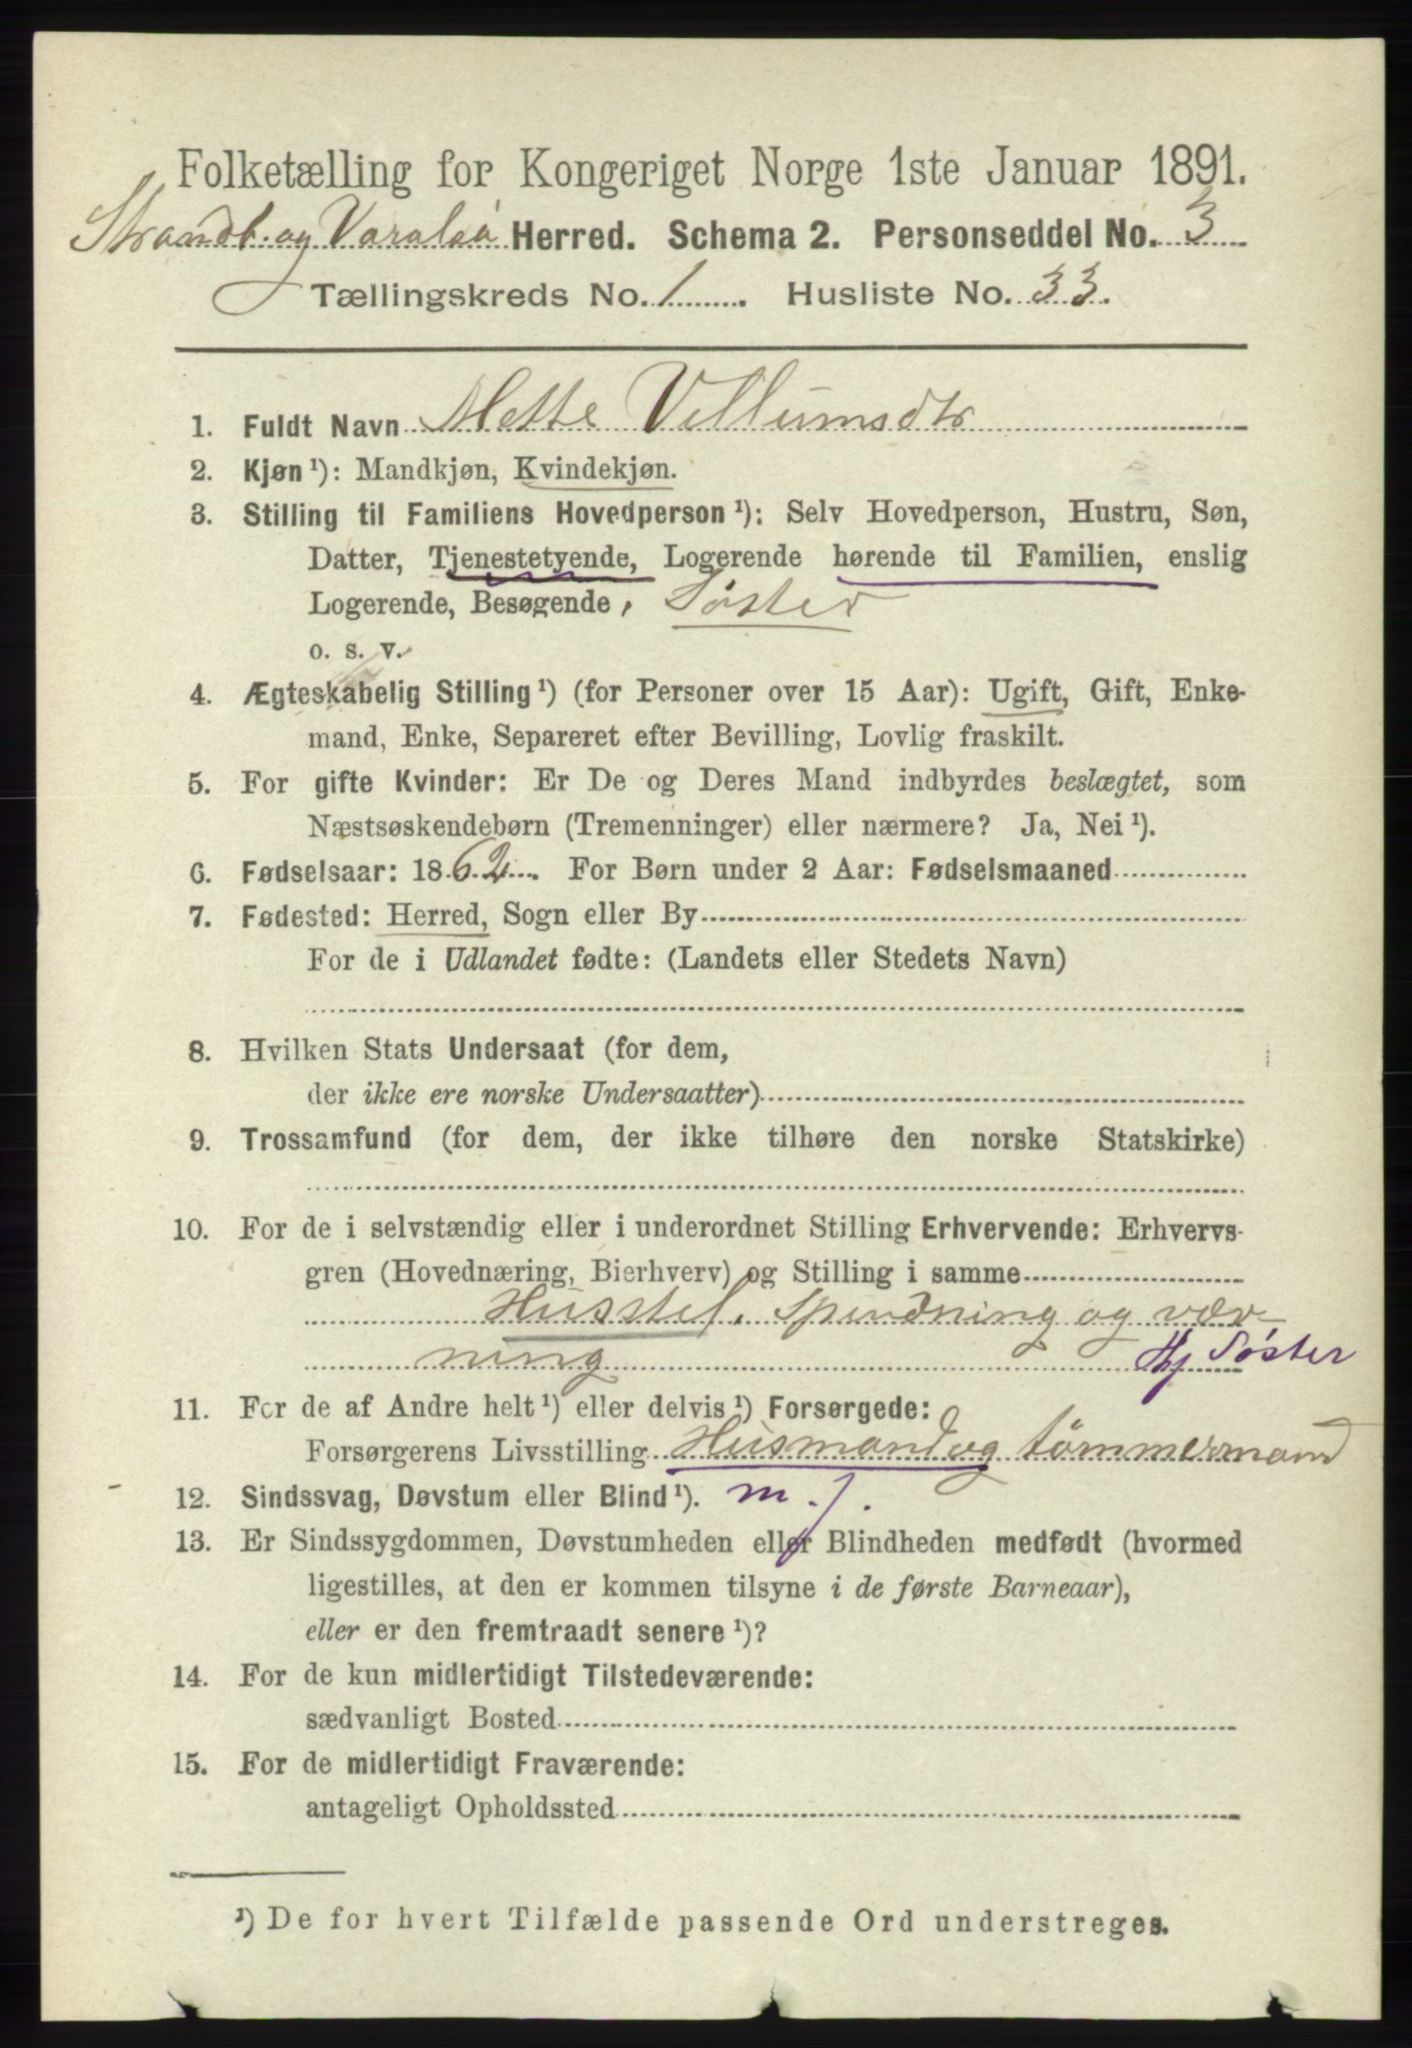 Folketælling for Kongeriget Norge 1ste Januar 1891.
Strandb. og Varalsø Herred. Schema 2. Personseddel No. 3
Tællingskreds No. 1 Husliste No. 33.
1. Fuldt Navn Mette Villumsdtr
2. Kjøn ¹): Mandkjøn, Kvindekjøn.
3. Stilling til Familiens Hovedperson ¹): Selv Hovedperson, Hustru, Søn,
Datter, Tjenestetyende, Logerende hørende til Familien, enslig
Logerende, Besøgende, Søster
o. s. v.
4. Ægteskabelig Stilling ¹) (for Personer over 15 Aar): Ugift, Gift, Enke-
mand, Enke, Separeret efter Bevilling, Lovlig fraskilt.
5. For gifte Kvinder: Er De og Deres Mand indbyrdes beslægtet, som
Næstsøskendebørn (Tremenninger) eller nærmere? Ja, Nei ¹).
6. Fødselsaar: 1862. For Børn under 2 Aar: Fødselsmaaned
7. Fødested: Herred, Sogn eller By
For de i Udlandet fødte: (Landets eller Stedets Navn)
8. Hvilken Stats Undersaat (for dem,
der ikke ere norske Undersaatter)
9. Trossamfund (for dem, der ikke tilhøre den norske Statskirke)
10. For de i selvstændig eller i underordnet Stilling Erhvervende: Erhvervs-
gren (Hovednæring, Bierhverv) og Stilling i samme
Husstel. Spindning og væv-
ning Hj Søster
11. For de af Andre helt ¹) eller delvis ¹) Forsørgede:
Forsørgerens Livsstilling Husmand og tømmermand
12. Sindssvag, Døvstum eller Blind ¹). m. f.
13. Er Sindssygdommen, Døvstumheden eller Blindheden medfødt (hvormed
ligestilles, at den er kommen tilsyne i de første Barneaar),
eller er den fremtraadt senere ¹)?
14. For de kun midlertidigt Tilstedeværende:
sædvanligt Bosted
15. For de midlertidigt Fraværende:
antageligt Opholdssted
¹) De for hvert Tilfælde passende Ord understreges.